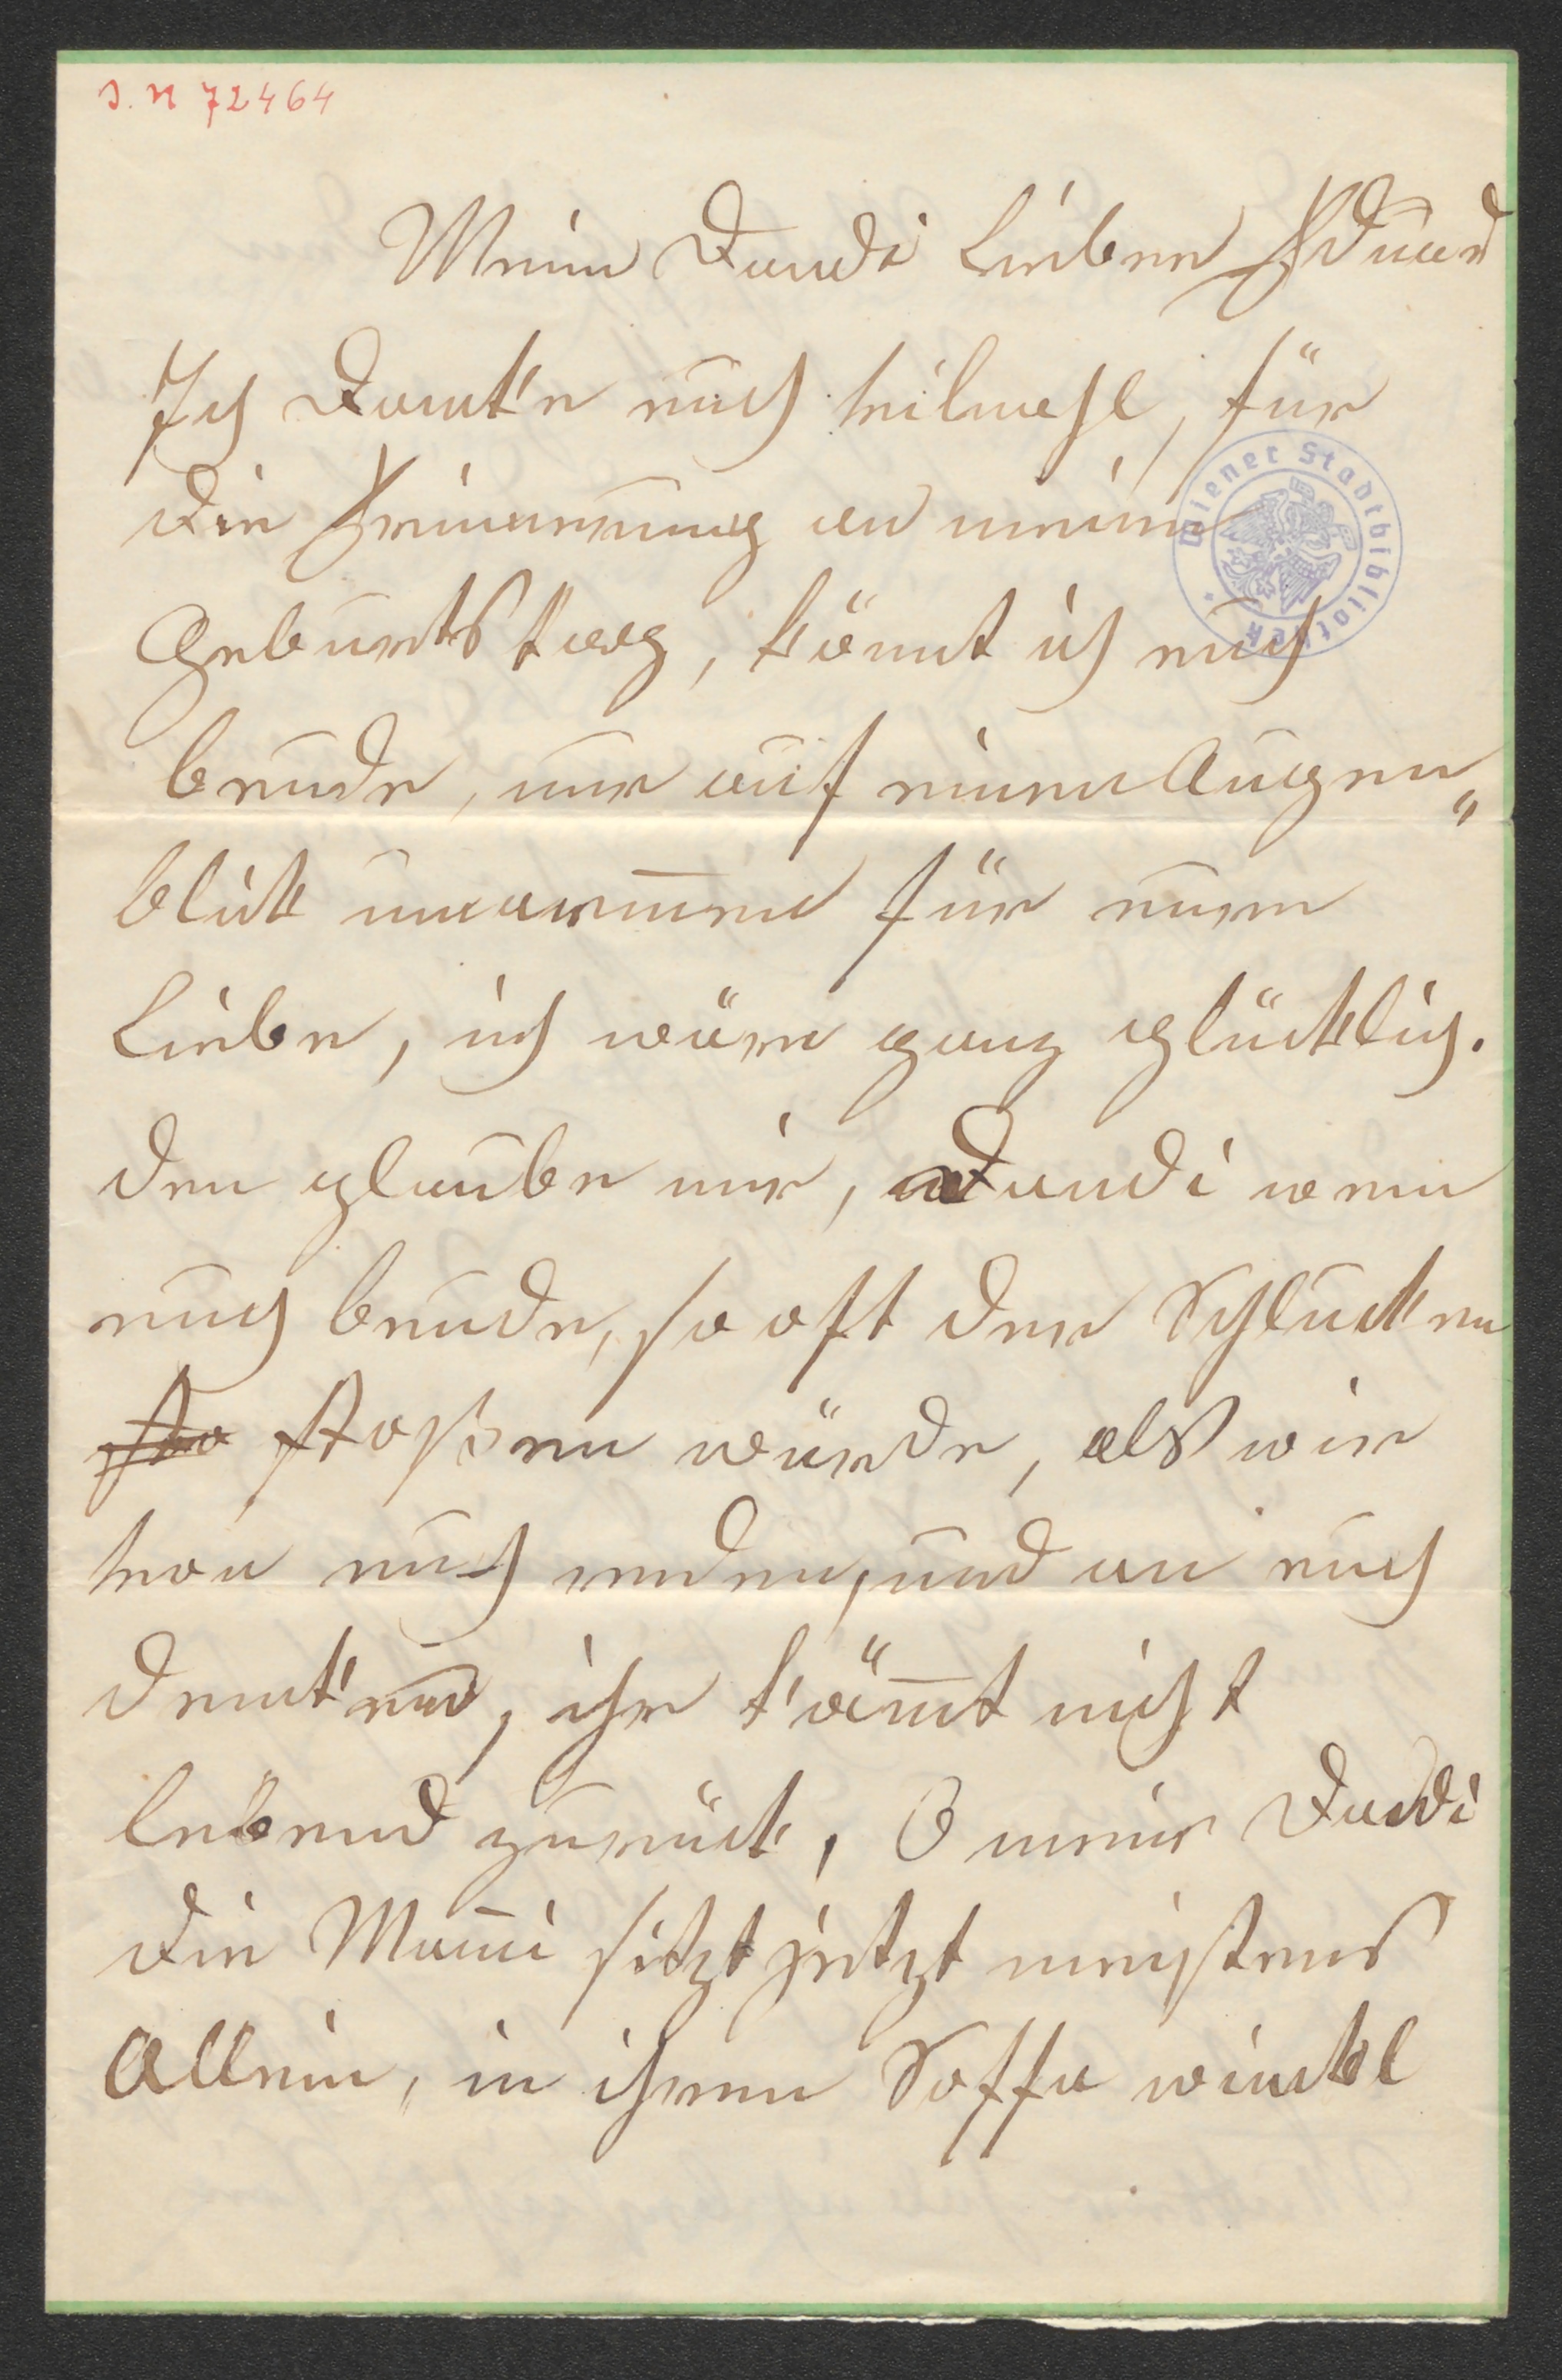 J. N 72464
Wiener Stadtbibliothek
Meine Dandi Lieber Eduard
Ich Dank'e euch , für
die Erinnerung an meine
Geburtstag, könnt ich euch
beude, nur auf einen Augen„
blick umarmen für eure
Liebe, ich wäre ganz glücklich.
den glaube mir, Dandi wenn
euch beude, so oft der Schlucken
sto stoßen würde, als wir
von euch reden, und an euch
denken, ihr kämt nicht
lebend zurück, O meine Dandi
die Mami sitzt jetzt meistens
Allein, in ihren Soffa winkel